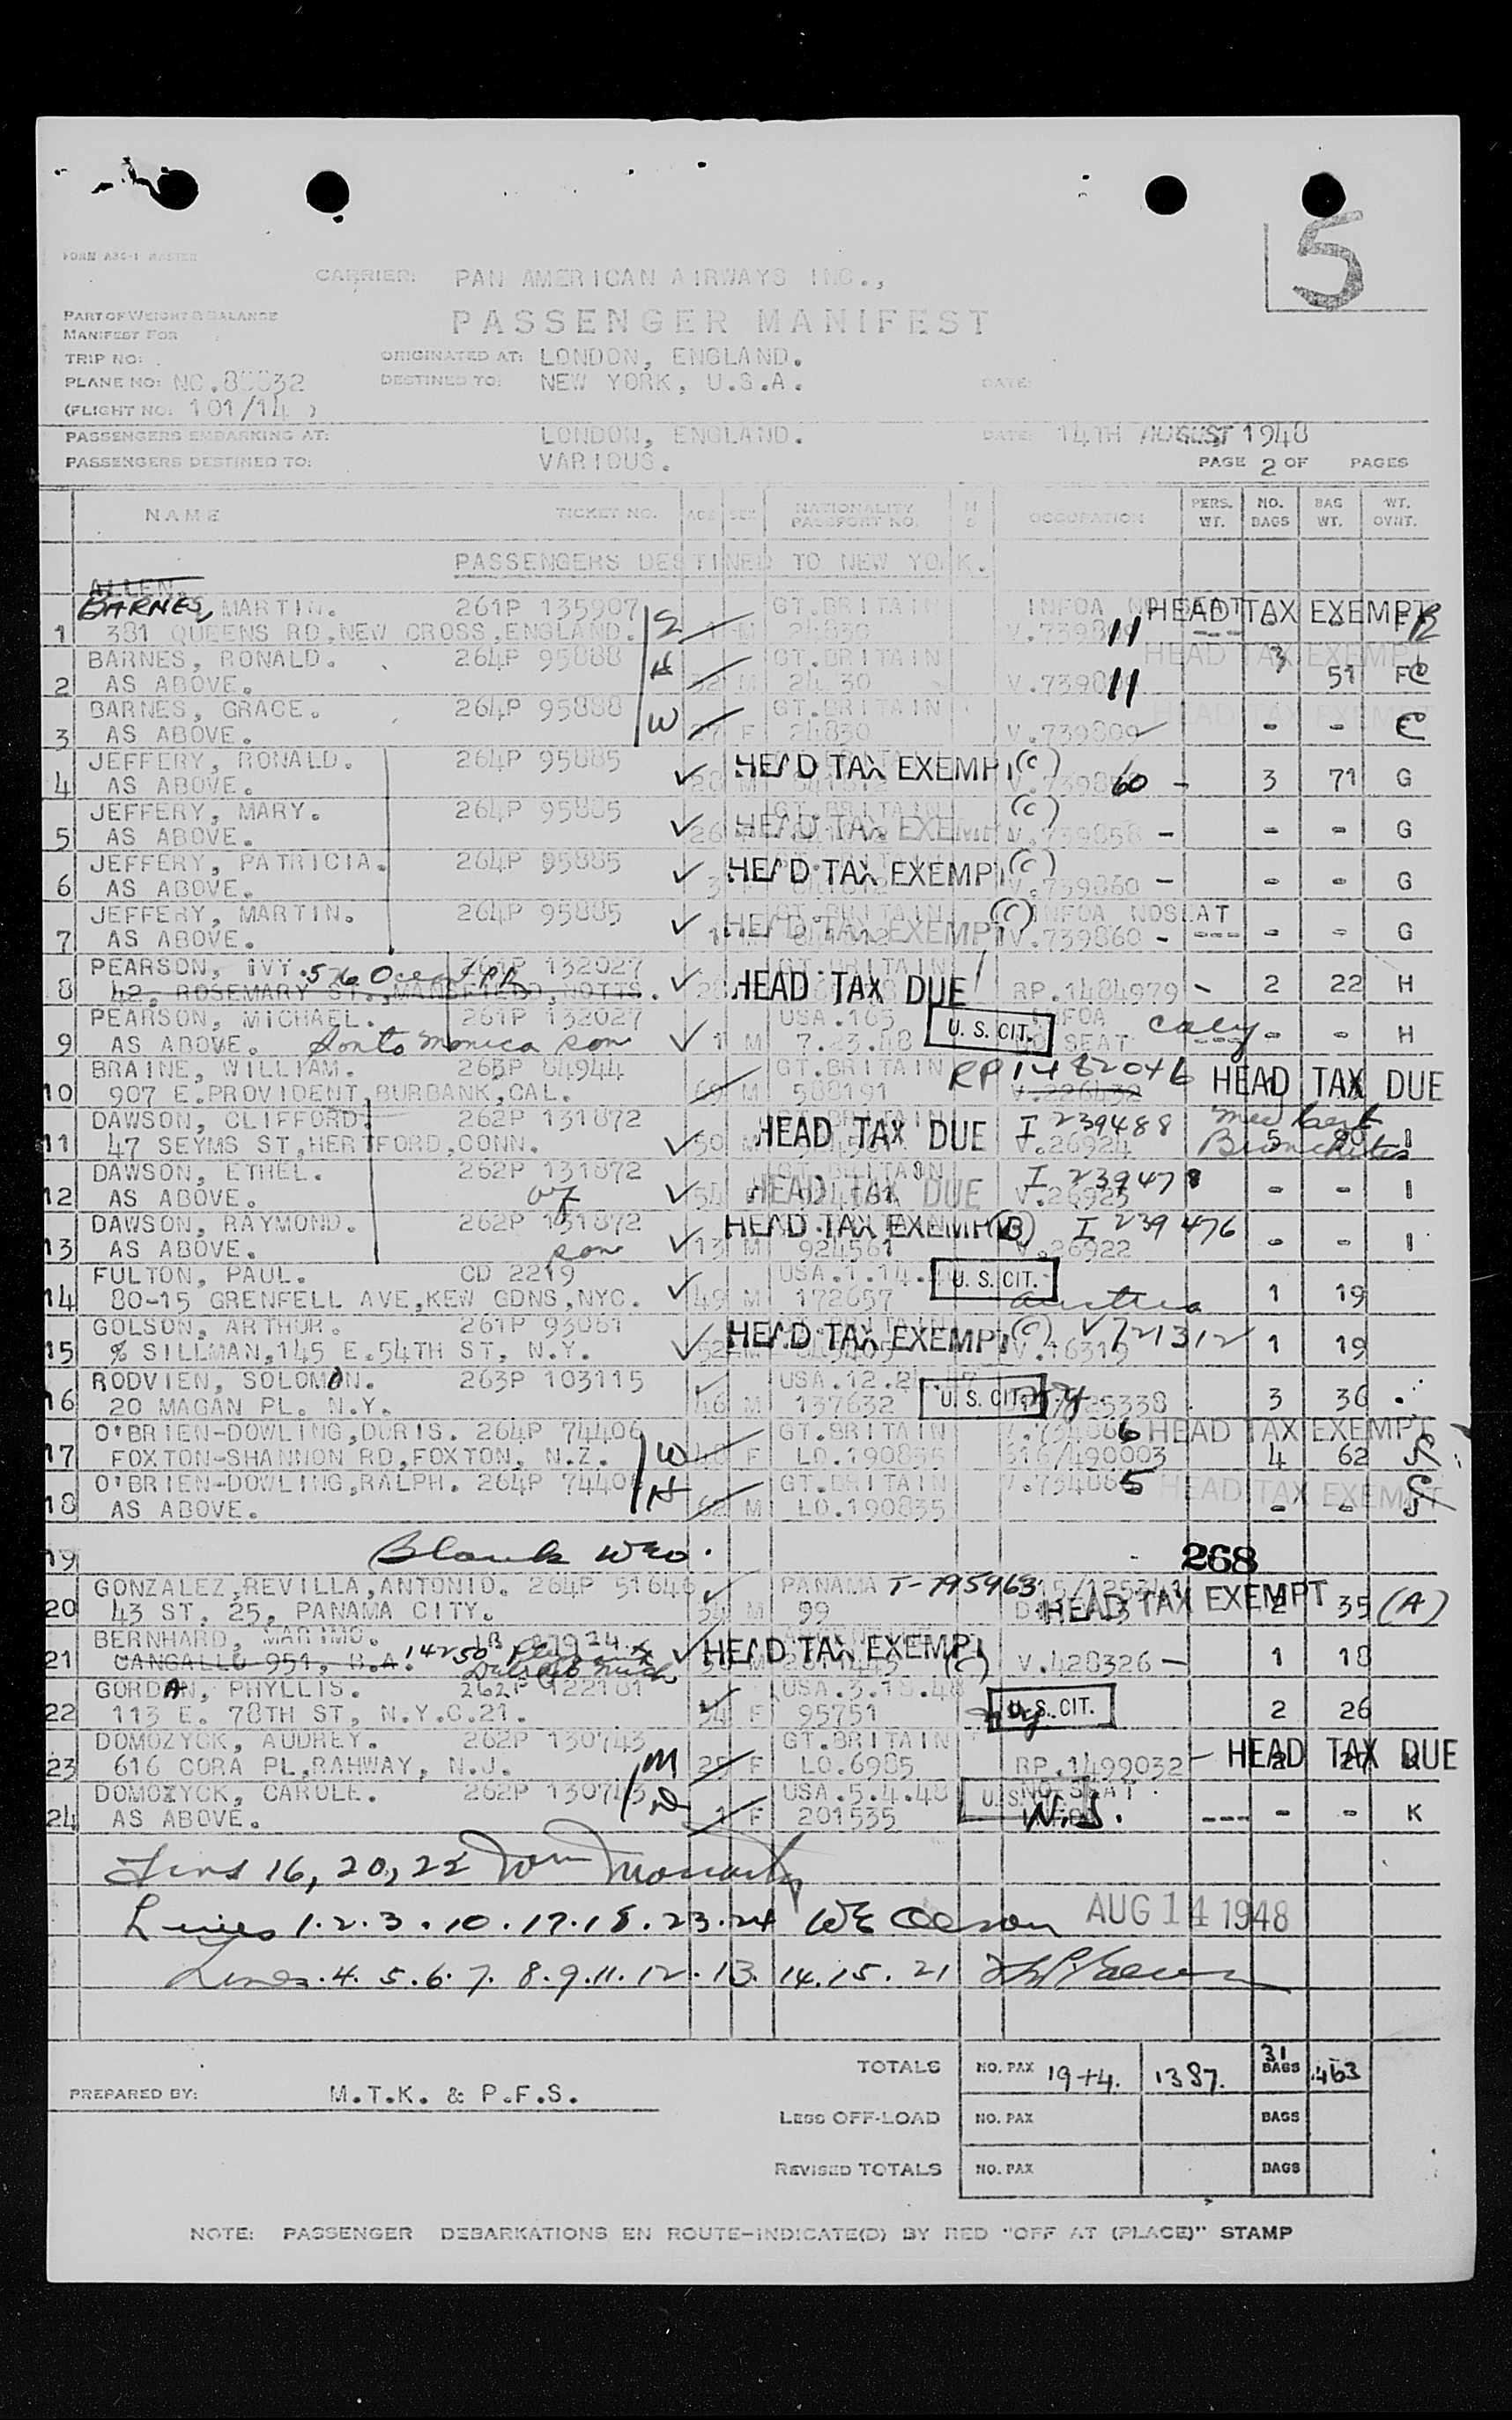 5
FORM ABC-1 MASTER
CARRIER: PAN AMERICAN AIRWAYS INC.,
PASSENGER MANIFEST
PART OF WEIGHT & BALANCE
MANIFEST FOR
TRIP NO:
ORIGINATED AT: LONDON, ENGLAND.
PLANE NO: NC.88832
DESTINED TO: NEW YORK, U.S.A. DATE:
(FLIGHT NO: 101/14 )
PASSENGERS EMBARKING AT: LONDON, ENGLAND. DATE: 14TH AUGUST 1948
PASSENGERS DESTINED TO: VARIOUS. PAGE 2 OF PAGES
NAME TICKET NO. AGE SEX NATIONALITY PASSPORT NO. OCCUPATION PERS. WT. NO. BAGS BAG WT. WT. OVHT.
PASSENGERS DESTINED TO NEW YORK.
ALLEN,
BARNES, MARTIN. 261P 135907 GT.BRITAIN INFOA NO SEAT HEAD TAX EXEMPT
1 381 QUEENS RD, NEW CROSS, ENGLAND. S 1 M 24830 11
BARNES, RONALD. 264P 95888 GT.BRITAIN HEAD TAX EXEMPT 3
2 AS ABOVE. H 32 M 11 51 F
BARNES, GRACE. 264P 95888 GT.BRITAIN HEAD TAX EXEMPT
3 AS ABOVE. W 27 F 24830 V.739809 - -
JEFFERY, RONALD. 264P 95885 HEAD TAX EXEMPT (C)
4 AS ABOVE. 28 M 60 - 3 71 G
JEFFERY, MARY. 264P 95885 GT.BRITAIN HEAD TAX EXEMPT (C)
5 AS ABOVE. 26 V.739858 - - - G
JEFFERY, PATRICIA. 264P 95885 HEAD TAX EXEMPT (C)
6 AS ABOVE. 3 V.739860 - - - G
JEFFERY, MARTIN. 264P 95885 GT.BRITAIN HEAD TAX EXEMPT (C) INFOA NOSEAT
7 AS ABOVE. 1 V.739860 - --- - - G
PEARSON, IVY. 576 Ocean Pk 261P 132027 GT.BRITAIN
8 42, ROSEMARY ST., MANSFIELD, NOTTS. HEAD TAX DUE RP.1484979 - 2 22 H
PEARSON, MICHAEL. 261P 132027 USA.165 U. S. CIT. INFOA
9 AS ABOVE. Santa Monica son 1 M 7.23.48 NO SEAT --- - - H
BRAINE, WILLIAM. 263P 84944 GT.BRITAIN RP 1482046 HEAD TAX DUE
10 907 E.PROVIDENT, BURBANK, CAL. 69 M 588191 V.226432
DAWSON, CLIFFORD. 262P 131872 HEAD TAX DUE I 239488 med cert
11 47 SEYMS ST, HERTFORD, CONN. 50 M V.26924 Bronchitis 5 I
DAWSON, ETHEL. 262P 131872 GT.BRITAIN HEAD TAX DUE I 239478
12 AS ABOVE. wf 54 V.26923 - - I
DAWSON, RAYMOND. 262P 131872 HEAD TAX EXEMPT (B) I 239476
13 AS ABOVE. son 13 M 924561 V.26922 - - I
FULTON, PAUL. CD 2219 USA.1.14. U. S. CIT.
14 80-15 GRENFELL AVE, KEW GDNS, NYC. 49 M 172657 Austria 1 19
GOLSON, ARTHUR. 261P 93061 HEAD TAX EXEMPT (C) V721312
15 % SILLMAN, 145 E.54TH ST, N.Y. 52 M 1 19
RODVIEN, SOLOMON. 263P 103115 U. S. CIT. NY
16 20 MAGAN PL. N.Y. 46 M 137632 3 36
O'BRIEN-DOWLING, DORIS. 264P 74406 GT.BRITAIN 6 HEAD TAX EXEMPT
17 FOXTON-SHANNON RD, FOXTON, N.Z. W F LO.190835 516/490003 4 62
O'BRIEN-DOWLING, RALPH. 264P 74406 GT.BRITAIN 5 HEAD TAX EXEMPT
18 AS ABOVE. H 62 M LO.190835 - -
19 Blank WEO. 268
GONZALEZ, REVILLA, ANTONIO. 264P 51646 PANAMA T-795963
20 43 ST. 25, PANAMA CITY. 34 M 99 HEAD TAX EXEMPT 2 35 (A)
BERNHARD, MARIMO. 14250 HEAD TAX EXEMPT
21 CANGALLO 951, B.A. Detroit Mich (C) V.428326 - 1 18
GORDAN, PHYLLIS. 262P 122181 USA.3.18.48 U. S. CIT.
22 113 E. 78TH ST, N.Y.C.21. 34 F 95751 ny 2 26
DOMOZYCK, AUDREY. 262P 130743 GT.BRITAIN HEAD TAX DUE
23 616 CORA PL, RAHWAY, N.J. M 25 F LO.6985 RP.1499032 - 2
DOMOZYCK, CAROLE. 262P 130743 USA.5.4.48 U. S. NO SEAT
24 AS ABOVE. D 1 F 201535 N.J. --- - - K
Lines 16, 20, 22 Tom Moriarty
Lines 1.2.3.10.17.18.23.24 WE Olson AUG 14 1948
Lines.4.5.6.7.8.9.11.12.13.14.15.21
TOTALS NO. PAX 19+4. 1387. 31 BAGS 463
PREPARED BY: M.T.K. & P.F.S.
LESS OFF-LOAD NO. PAX BAGS
REVISED TOTALS NO. PAX BAGS
NOTE: PASSENGER DEBARKATIONS EN ROUTE-INDICATE(D) BY RED "OFF AT (PLACE)" STAMP